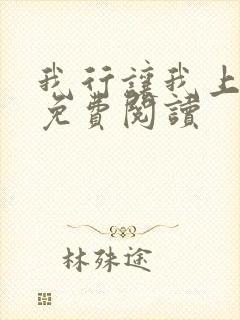 我行讓我上
免費閱讀
林殊途